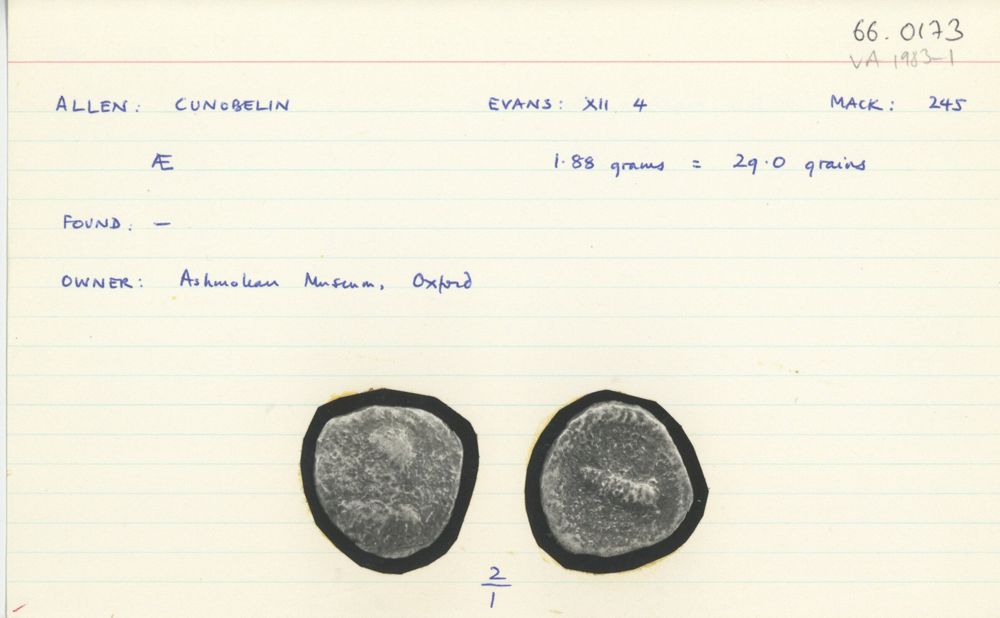 66.0173
VA 1983-1
ALLEN: CUNOBELIN EVANS: XII 4 MACK: 245
Æ 1.88 grams = 29.0 grains
FOUND: —
OWNER: Ashmolean Museum, Oxford
2
1